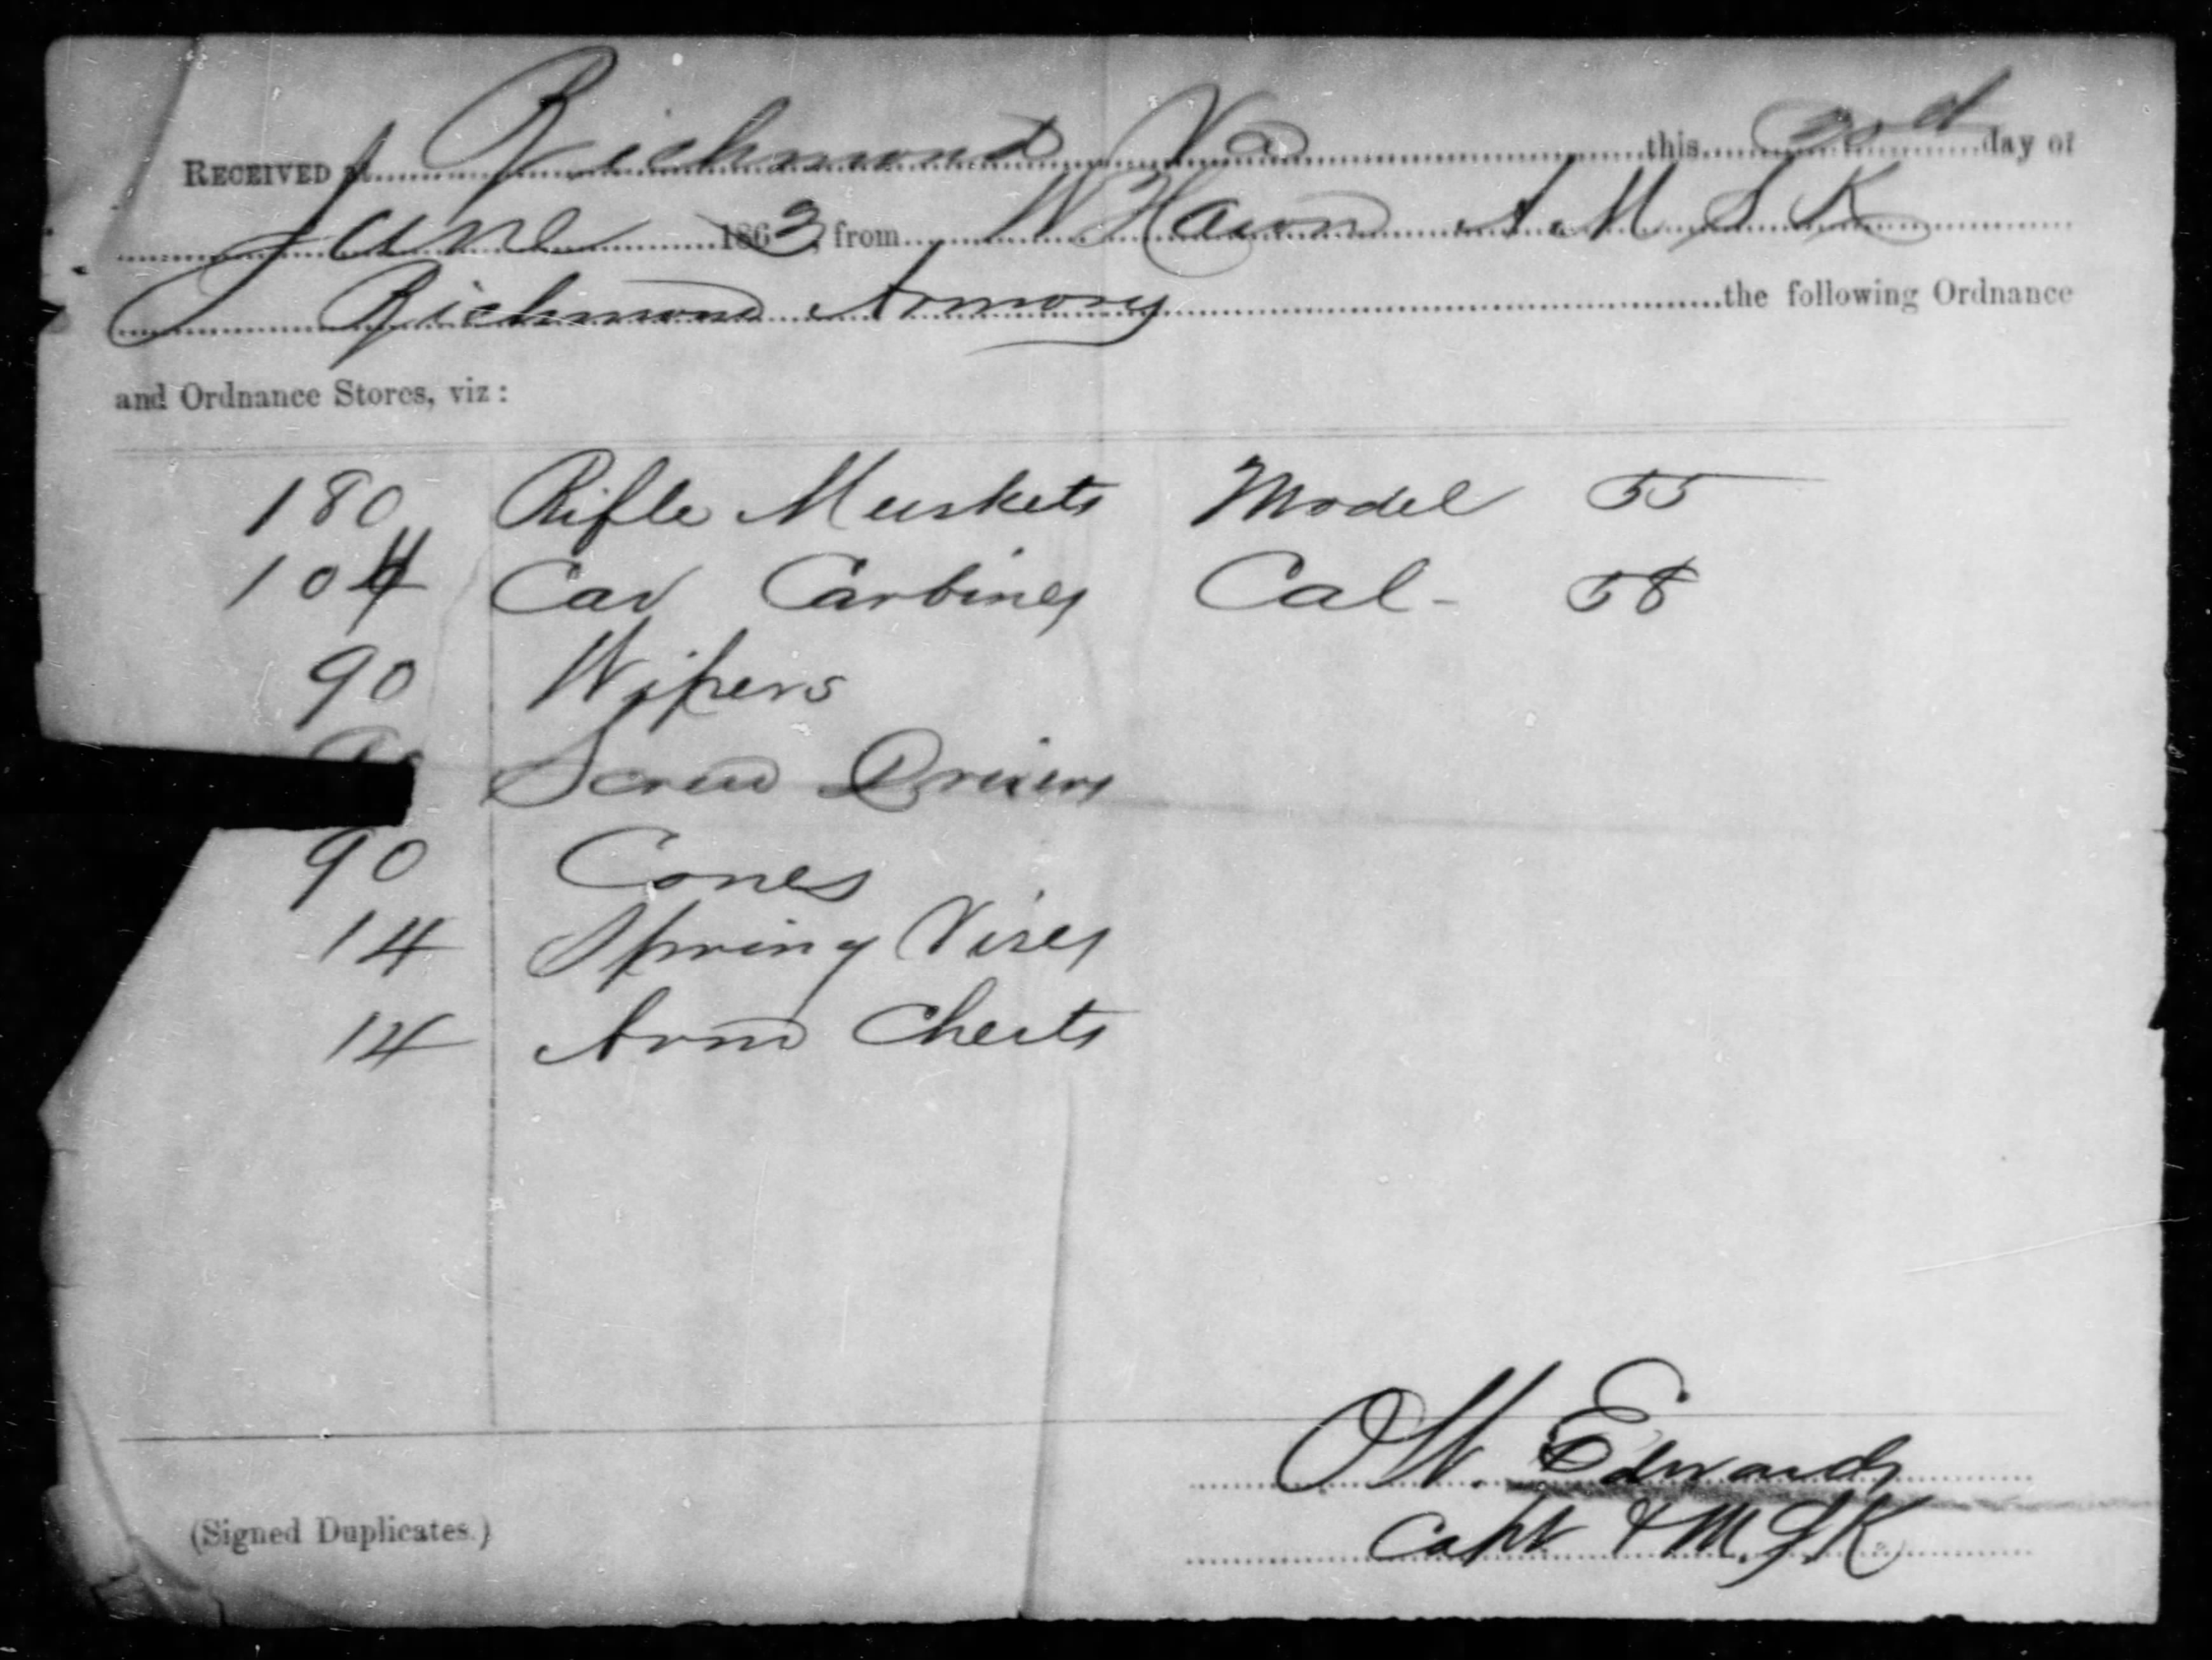 RECEIVED at Richmond Va this 22d day of
June 1863, from W Hawn A. M S K
Richmond Armory the following Ordnance
and Ordnance Stores, viz:
180 Rifle Muskets Model 55
104 Cav Carbines Cal- 58
90 Wipers
Screw Drivers
90 Cones
14 Spring Vises
14 Arm Chests
O W. Edwards
(Signed Duplicates.) Capt & M. S K.